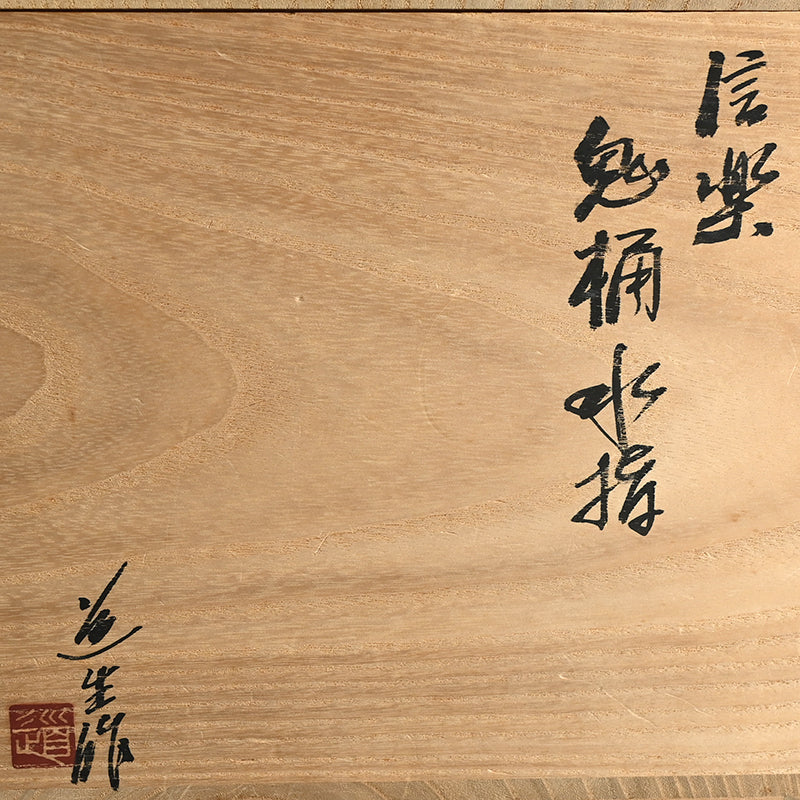 信楽
鬼桶水指
道生作